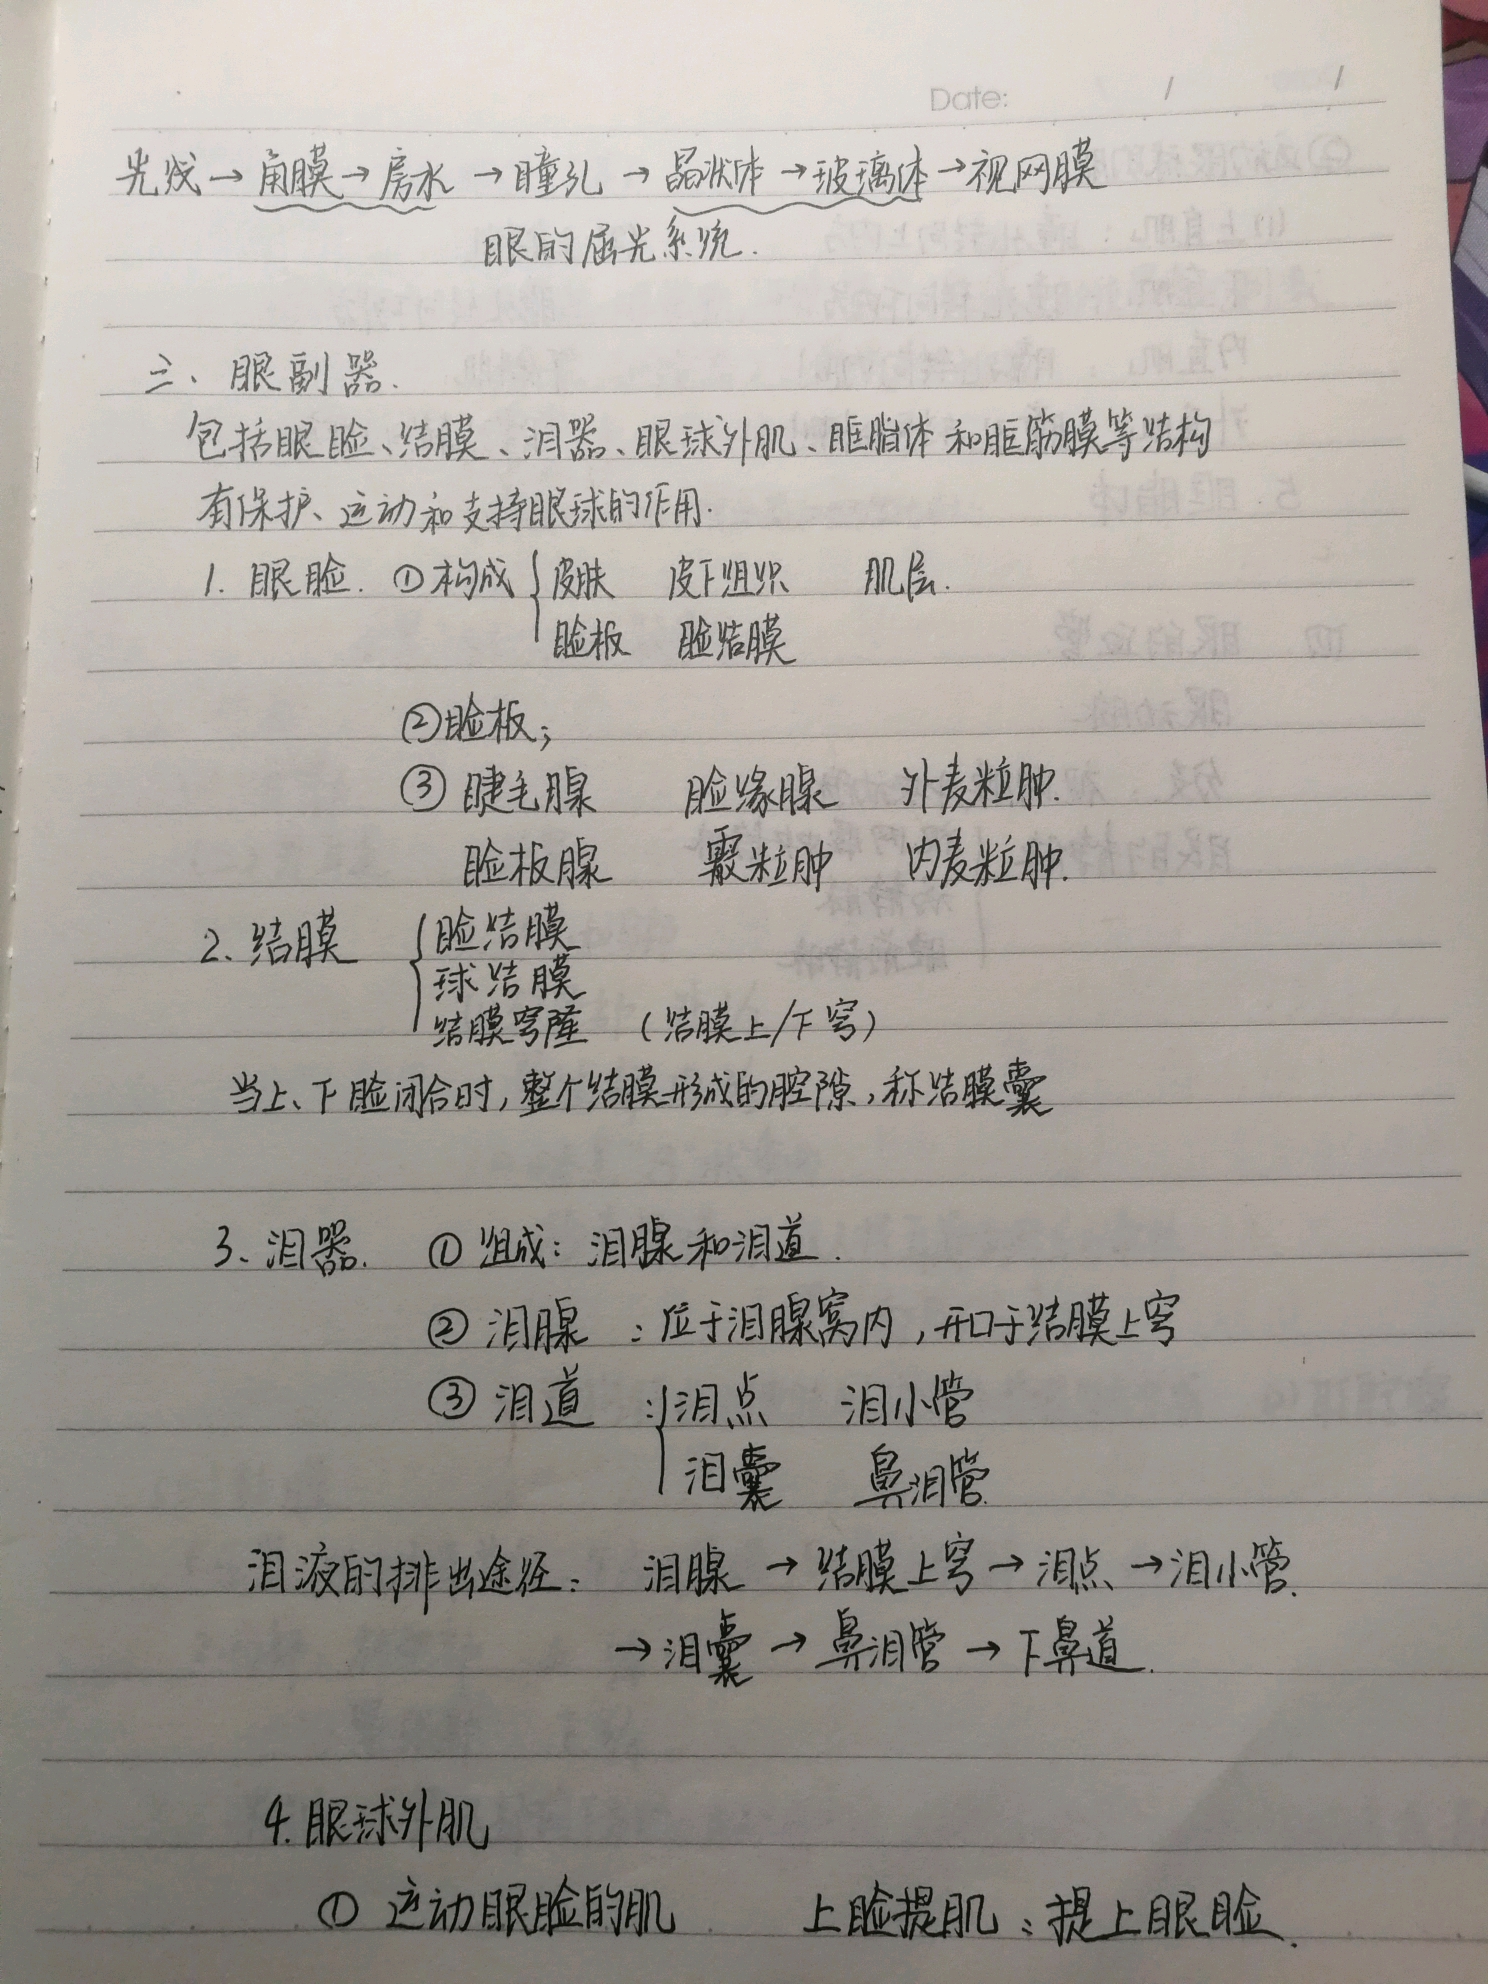 Date: / /
光线→角膜→房水→瞳孔→晶状体→玻璃体→视网膜
眼的屈光系统.
三、眼副器.
包括眼睑、结膜、泪器、眼球外肌、眶脂体和眶筋膜等结构
有保护、运动和支持眼球的作用.
1. 眼睑. ①构成 { 皮肤 皮下组织 肌层.
睑板 睑结膜
②睑板;
③睫毛腺 睑缘腺 外麦粒肿.
睑板腺 霰粒肿 内麦粒肿.
2、结膜 { 睑结膜
球结膜
结膜穹窿 (结膜上/下穹)
当上、下睑闭合时,整个结膜形成的腔隙,称结膜囊
3、泪器. ①组成: 泪腺和泪道.
②泪腺 : 位于泪腺窝内,开口于结膜上穹
③泪道 : { 泪点 泪小管
泪囊 鼻泪管.
泪液的排出途径: 泪腺→结膜上穹→泪点→泪小管.
→泪囊→鼻泪管→下鼻道.
4. 眼球外肌
①运动眼睑的肌 上睑提肌: 提上眼睑.